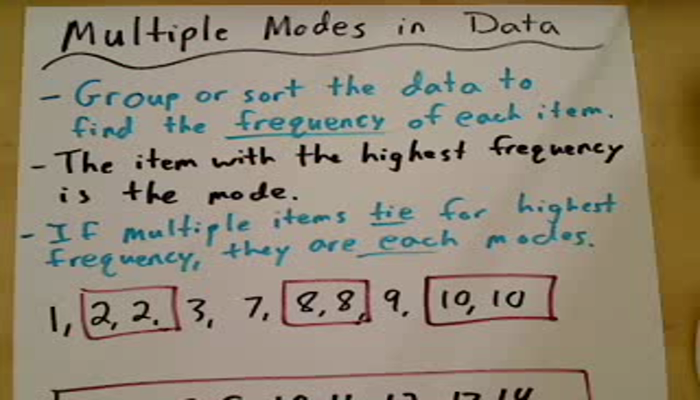 Multiple Modes in Data
- Group or sort the data to
find the frequency of each item.
- The item with the highest frequency
is the mode.
- If multiple items tie for highest
frequency, they are each modes.
1, 2, 2, 3, 7, 8, 8, 9, 10, 10